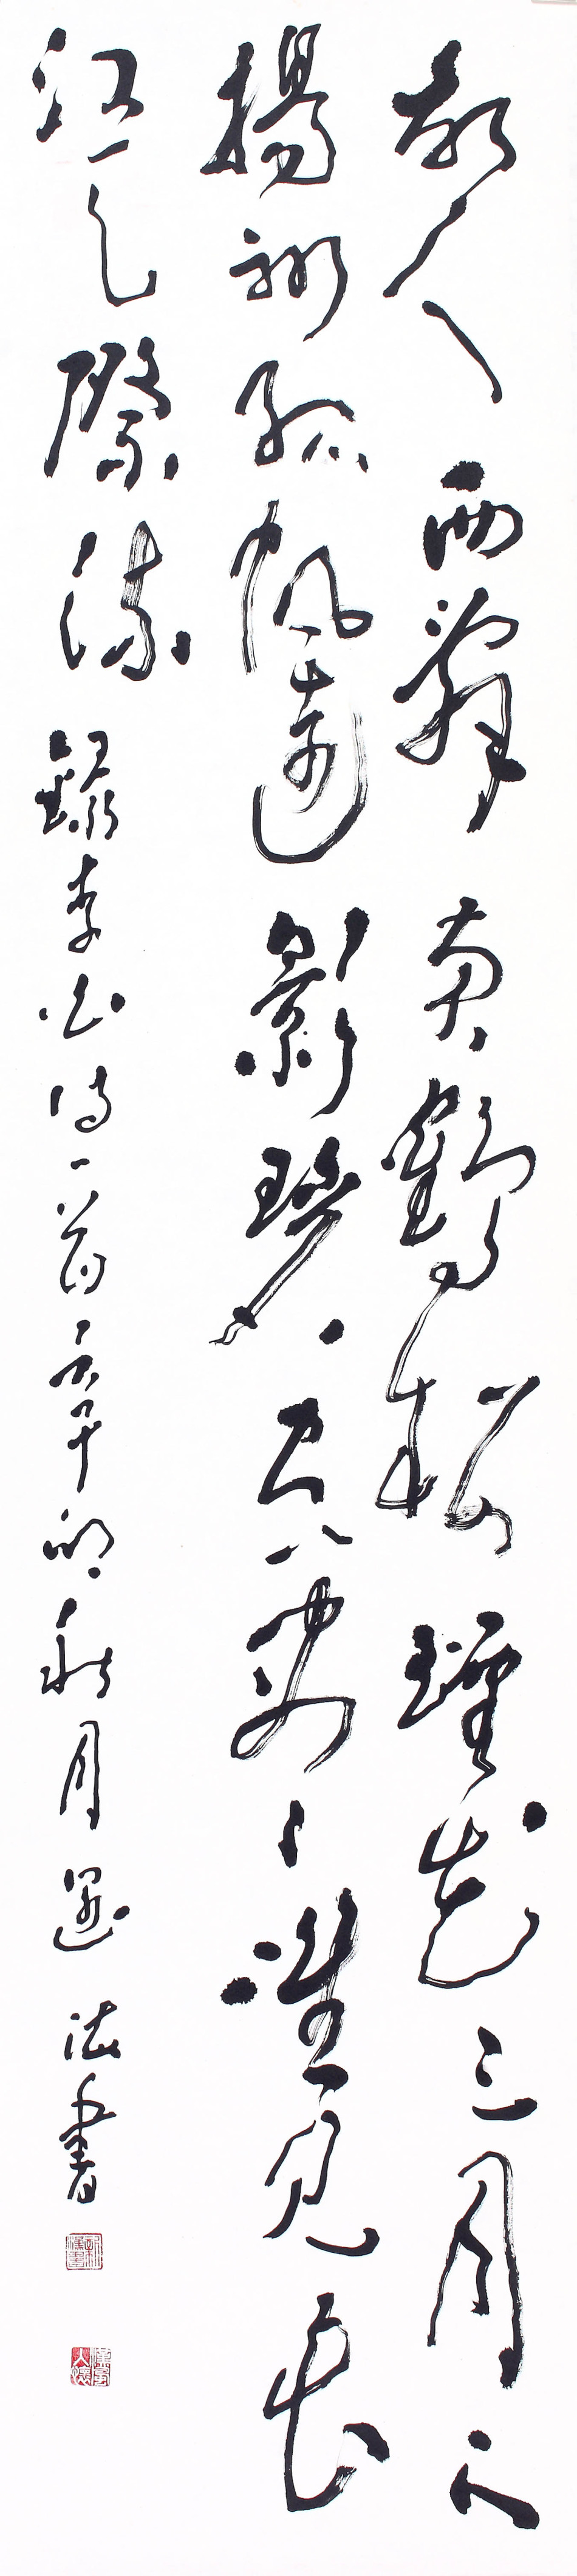 故人西辭黃鶴樓煙花三月下
揚州孤帆遠影碧空盡唯見長
江天際流 錄李白詩一首 秋月 法書